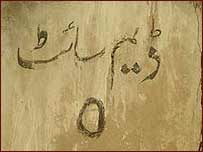 ڈیم سائٹ
۵